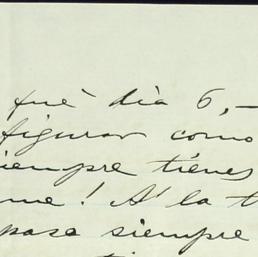 fué dia 6,-
figurar como
iempre tiénes
me! A' la t
pasa siempre